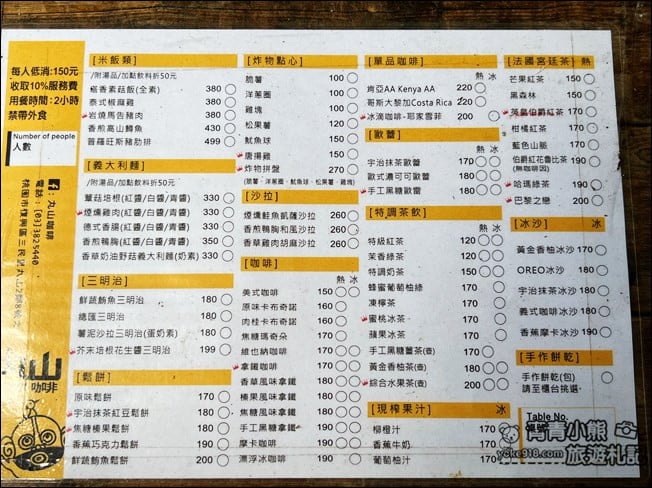 每人低消:150元
收取10%服務費
用餐時間:2小時
禁帶外食
Number of people
人數
丸山咖啡
電話:(03)3825440
桃園市復興區三民里丸山
咖啡
[米飯類]
/附湯品/加點飲料折50元
椒香素菇飯(全素) 380
泰式椒麻雞 380
岩燒馬告豬肉 380
香煎高山鱒魚 430
普羅旺斯豬肋排 499
[義大利麵]
/附湯品/加點飲料折50元
蕈菇培根(紅醬/白醬/青醬) 330
煙燻雞肉(紅醬/白醬/青醬) 330
德式香腸(紅醬/白醬/青醬) 330
香煎鴨胸(紅醬/白醬/青醬) 350
香草奶油野菇義大利麵(奶素) 330
[三明治]
鮮蔬鮪魚三明治 180
總匯三明治 180
薯泥沙拉三明治(蛋奶素) 180
芥末培根花生醬三明治 199
[鬆餅]
原味鬆餅 170
宇治抹茶紅豆鬆餅 180
焦糖榛果鬆餅 190
香蕉巧克力鬆餅 190
鮮蔬鮪魚鬆餅 200
[炸物點心]
脆薯 100
洋蔥圈 100
雞塊 100
松果薯 100
魷魚球 150
唐揚雞 150
炸物拼盤 270
(脆薯、洋蔥圈、魷魚球、松果薯、雞塊)
[沙拉]
煙燻鮭魚凱薩沙拉 260
香煎鴨胸和風沙拉 260
香草雞肉胡麻沙拉 260
[咖啡] 熱 冰
美式咖啡 150
原味卡布奇諾 160
肉桂卡布奇諾 160
焦糖瑪奇朵 170
維也納咖啡 170
拿鐵咖啡 170
香草風味拿鐵 180
榛果風味拿鐵 180
焦糖風味拿鐵 180
手工黑糖拿鐵 190
摩卡咖啡 190
漂浮冰咖啡 190
[單品咖啡] 熱 冰
肯亞AA Kenya AA 220
哥斯大黎加Costa Rica 220
冰滴咖啡-耶家雪菲 200
[歐蕾]
宇治抹茶歐蕾 170
歐式濃可可歐蕾 180
手工黑糖歐蕾 180
[特調茶飲]
特級紅茶 130
茉香綠茶 130
特調奶茶 150
蜂蜜葡萄柚綠 170
凍檸茶 170
蜜桃冰茶 170
蘋果冰茶 170
手工黑糖薑茶(壺) 170
黃金香柚茶(壺) 180
綜合水果茶(壺) 200
[現榨果汁]
柳橙汁 170
香蕉牛奶 170
葡萄柚汁 170
[法國宮廷茶] 熱 冰
芒果紅茶 150
黑森林 150
英皇伯爵紅茶 170
柑橘紅茶 170
藍色山脈 170
伯爵紅花魯比茶 190
(無咖啡因)
哈瑪綠茶 190
巴黎之戀 200
[冰沙] 冰
黃金香柚冰沙 170
OREO冰沙 180
宇治抹茶冰沙 180
義式咖啡冰沙 180
香蕉摩卡冰沙 190
[手作餅乾]
手作餅乾(包)
請至櫃台挑選。
Table No.
桌號
青青小熊
yoke918.com 旅遊札記